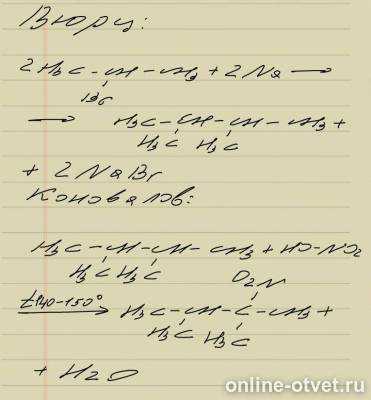 Вюрц:
2 H₃C – CH – CH₃ + 2 Na →
Br
→ H₃C – CH – CH – CH₃ +
H₃C H₃C
+ 2 NaBr
Коновалов:
H₃C – CH – CH – CH₃ + HO–NO₂
H₃C H₃C
O₂N
t140–150° H₃C – CH – C – CH₃ +
H₃C H₃C
+ H₂O
online-otvet.ru